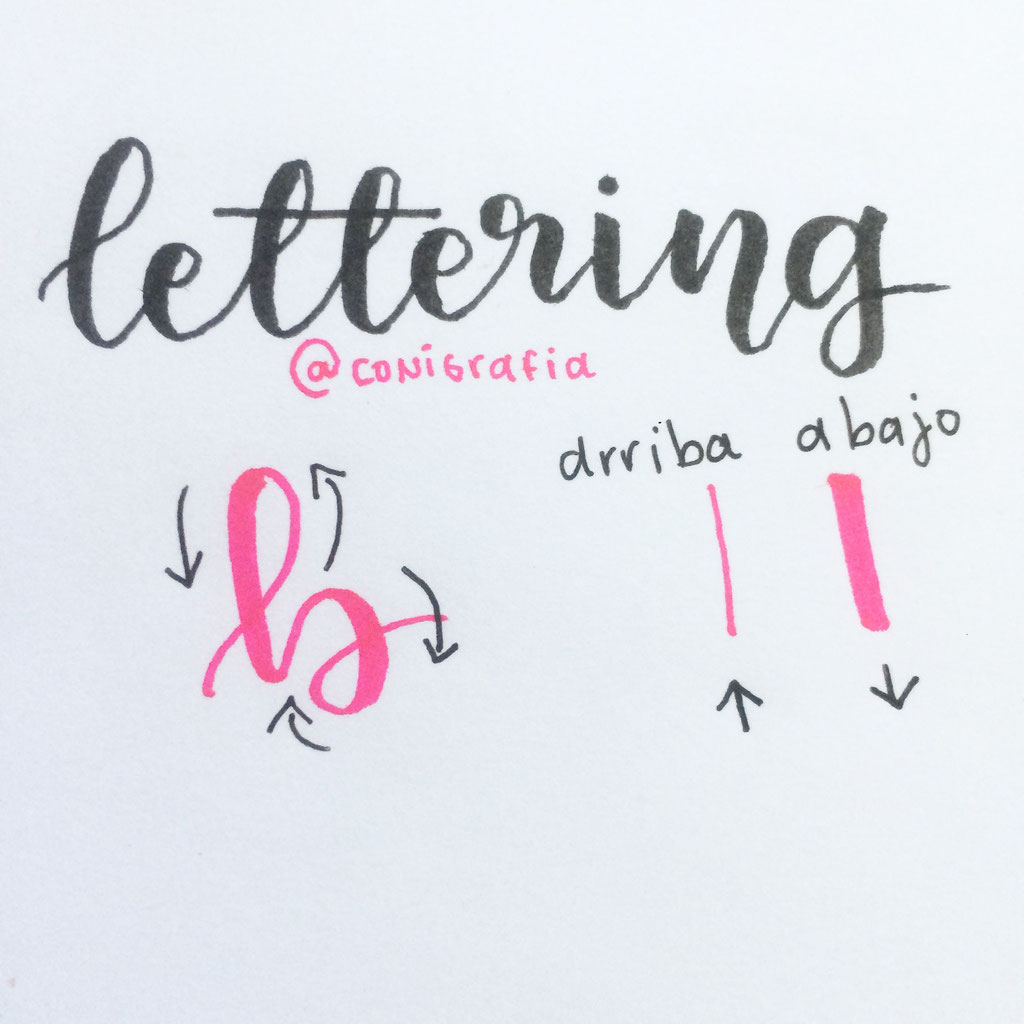 lettering
@conigrafia
arriba abajo
b